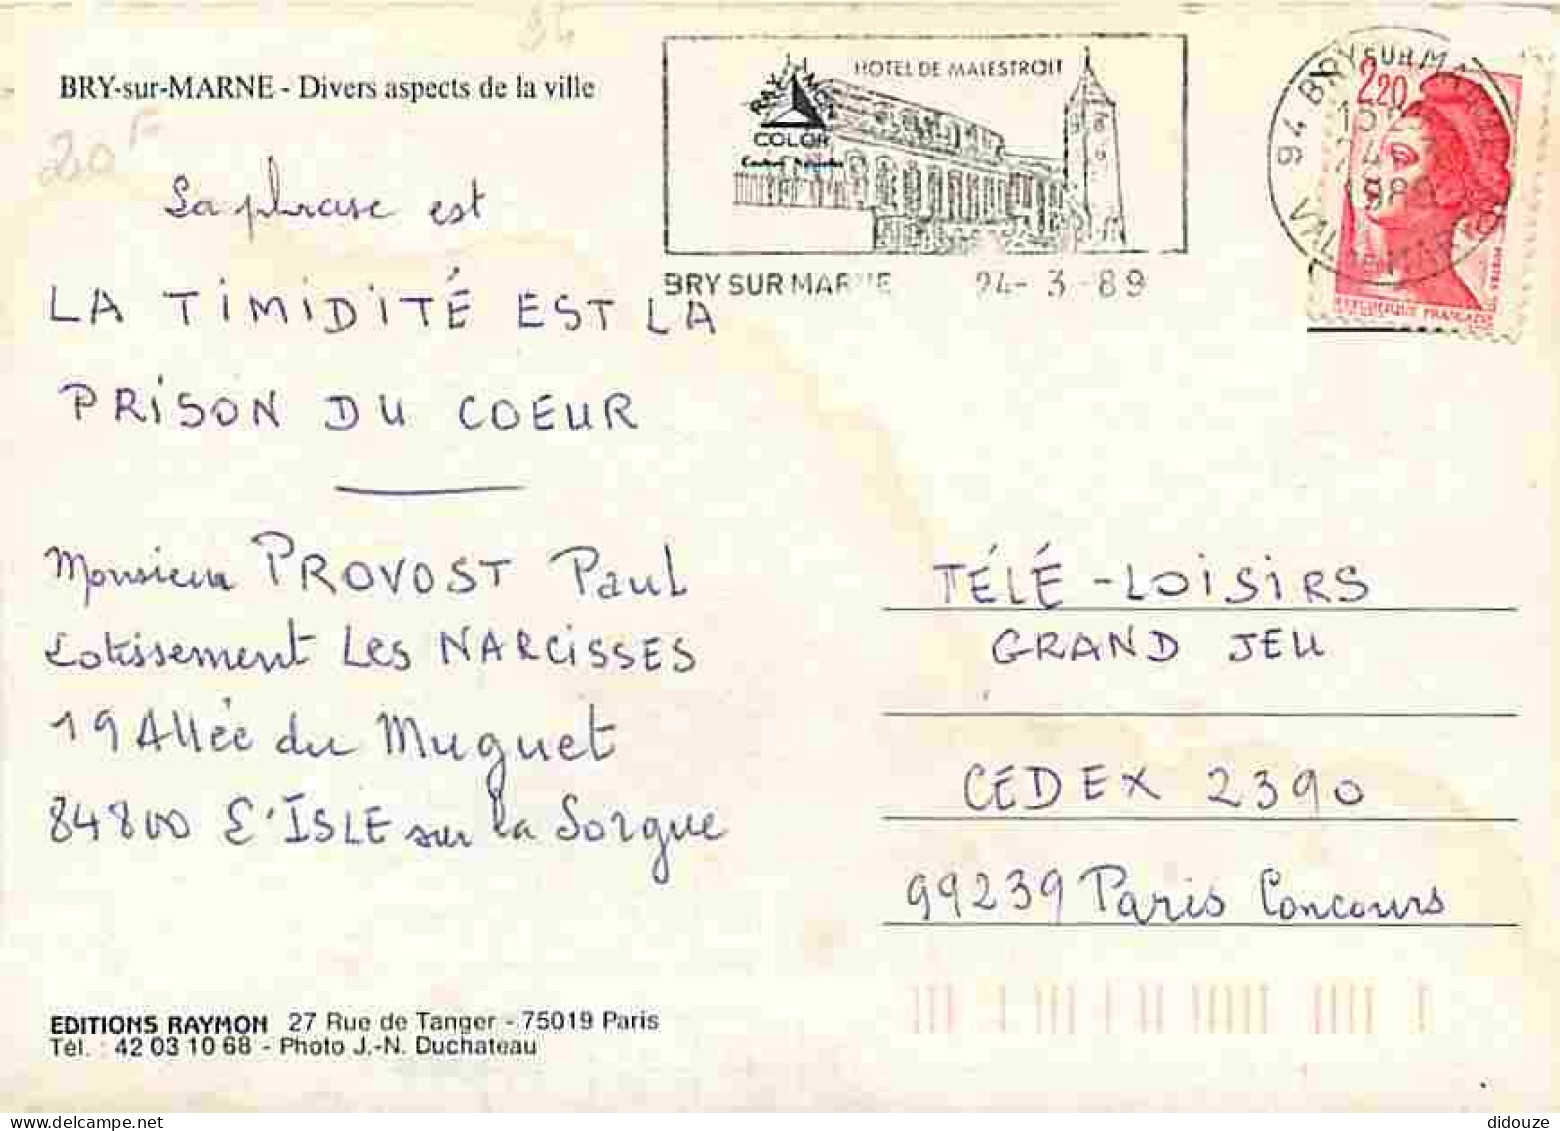 84
BRY-sur-MARNE - Divers aspects de la ville
20 F
La phrase est
LA TIMIDITÉ EST LA
PRISON DU COEUR
Monsieur PROVOST Paul
Lotissement Les NARCISSES
19 Allée du Muguet
84800 L'ISLE sur la Sorgue
EDITIONS RAYMON 27 Rue de Tanger - 75019 Paris
Tél. : 42 03 10 68 - Photo J.-N. Duchateau
HOTEL DE MALESTROIT
COLOR
BRY SUR MARNE 24-3-89
94 BRY SUR MARNE
1989
VAL DE MARNE
2,20
REPUBLIQUE FRANÇAISE
TÉLÉ-LOISIRS
GRAND JEU
CEDEX 2390
99239 Paris Concours
didouze